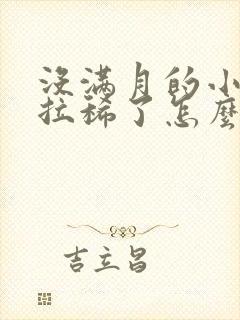 没满月的小
拉稀了怎麼
吉立昌